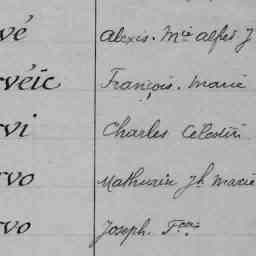 vé Alexis. Mie Alfred J
rvéic François. Marie
rvi Charles Celestin
rvo Mathurin Jh Marie
rvo Joseph. Fçois